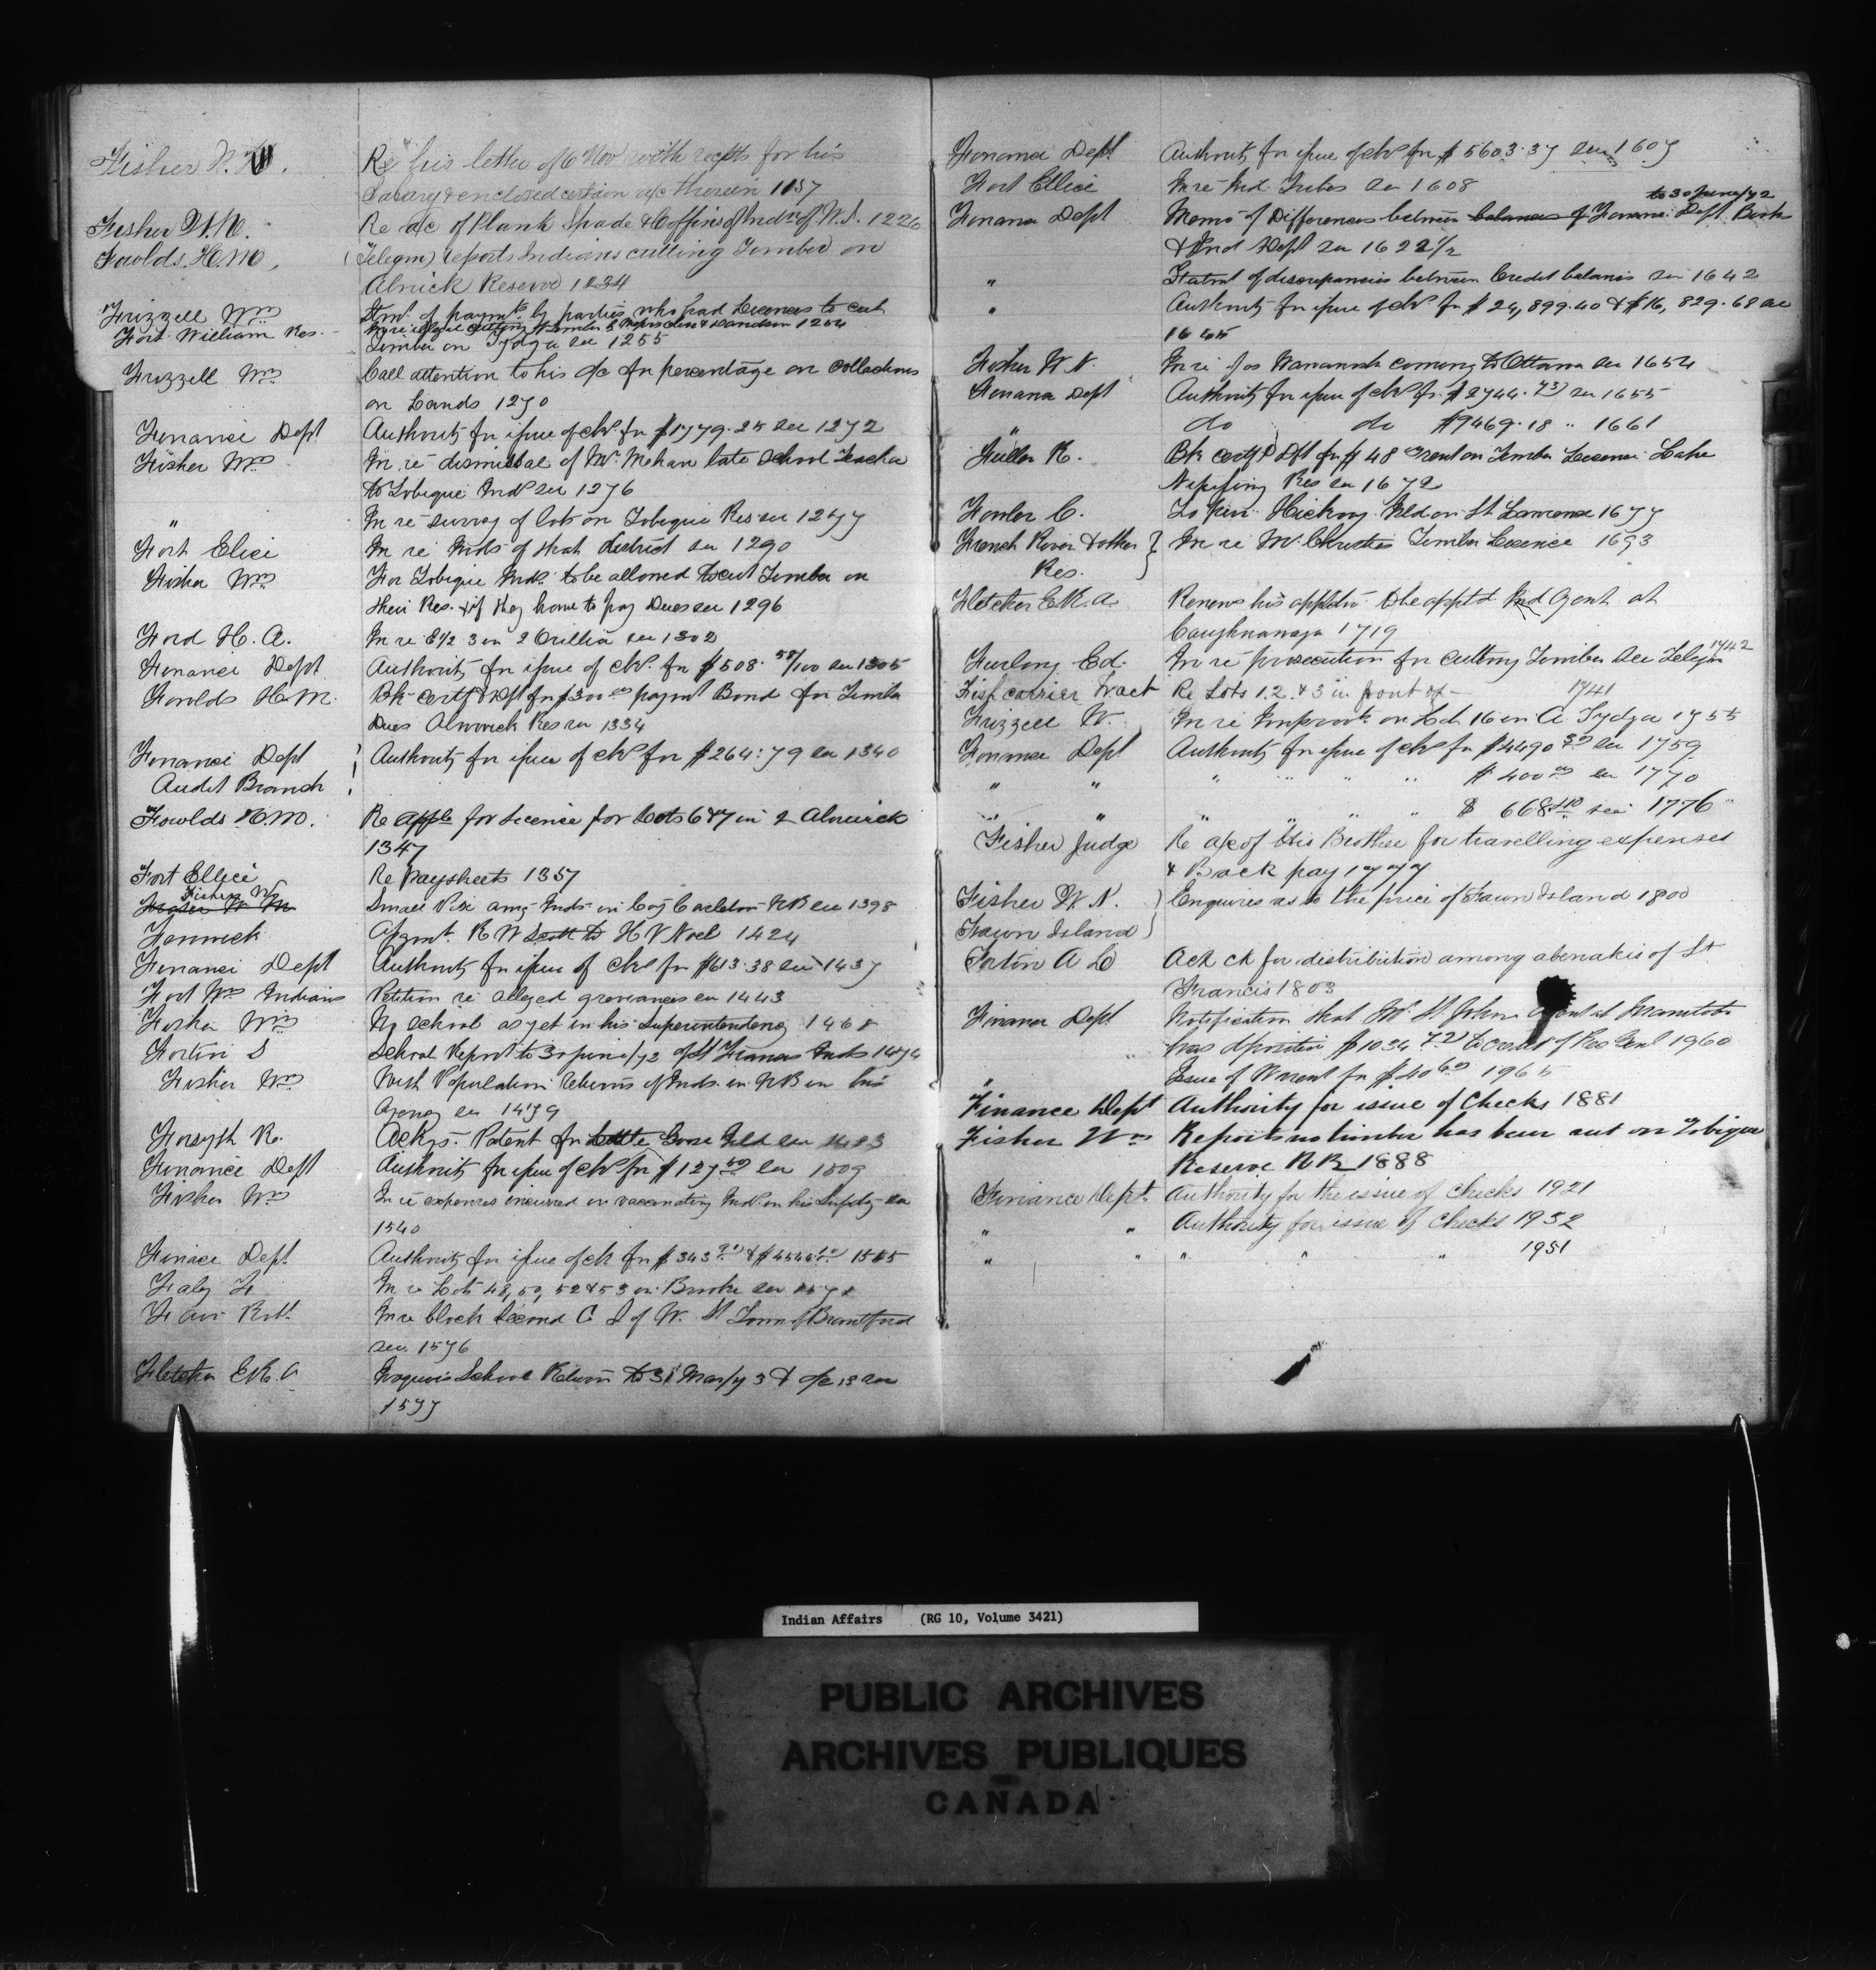 Fisher W. N. Re his letter of 6 Nov with recpts for his
Salary & enclosed certain a/c therein 1157
Fisher W. N. Re a/c of Plank Spade & Coffins of Indns of N.S. 1226
Fowlds. H. M. (Telegm) reports Indians cutting Timber on
Alnwick Reserve 1234
Frizzell Wm Stmt of paymts by parties who had Licences to cut
Fort William Res. In re illegal cutting of timber by 1254
Timber on Sydga see 1255
Frizzell Wm Call attention to his a/c for percentage on collections
on Lands 1270
Finance Dept Authority for issue of chq for $1779.25 see 1272
Fisher Wm In re dismissal of Mr. Mehan late School Teacher
to Tobique Inds see 1276
" In re survey of lots on Tobique Res see 1277
Fort Elice In re Inds of that district see 1290
Fisher Wm For Tobique Inds to be allowed to cut Timber on
their Res. & if they have to pay Dues see 1296
Ford H. A. In re E1/2 3 in 2 Orillia see 1302
Finance Dept Authority for issue of chq. for $508. 58/100 see 1305
Fowlds H. M. Bk certf Dft for $300 00 paymt Bond for Timber
Dues Alnwick Res see 1334
Finance Dept Authority for issue of chq for $264.79 see 1340
Audit Branch
Fowlds H. M. Re appln for Licence for Lots 6 & 7 in 2 Alnwick
1347
Fort Ellice Re Paysheets 1357
Fisher Wm
Small Pox amg Inds in Coy Carleton NB see 1398
Fenwick Asgmt. R W Scott to H V Noel 1424
Finance Dept Authority for issue of chq for $613.38 see 1437
Fort Wm Indians Petition re alleged grievances see 1443
Fisher Wm No school as yet in his Superintendency 1468
Fortin S School Report to 30 June/72 of St Francis Inds 1474
Fisher Wm Wish Population returns of Inds. in NB in his
Agency see 1479
Forsyth R. Ackgs. Patent for Little Goose Isld see 1483
Finance Dept Authority for issue of chq for $127 50 see 1509
Fisher Wm In re expenses incurred in vaccinating Inds in his Supdcy see
1540
Finace Dept. Authority for issue of ch for $343 & $4546 1565
In re Lots 48, 50, 52 & 53 in Brooke see 1571
Fair Robt. In re block Second C S of W. St Town of Brantford
see 1576
Fletcher E. R. A Iroquois School Return to 31 Mar/73 & a/c 13 see
1577
Finance Dept Authority for issue of chq for $5603.37 see 1607
Fort Ellice In re Ind. Tribes see 1608
to 30 June/72
Finance Dept Memo of Differences between balances of Finance Dept. Books
& Ind Dept see 1622 1/2
" Statmt of discrepancies between Credit balances see 1642
" Authority for issue of chq for $24,899.40 & $16,829.68 see
1645
Fisher W. N. In re Jos coming to Ottawa see 1654
Finance Dept Authority for issue of chq for $2744.73 see 1655
" do do $9469.18 " 1661
Fuller R. Bk certf Dft for $48 Grent on Timber Licence Lake
Nipissing Res see 1672
Fowler C. To purc Hickory Isld on St Lawrence 1677
French River & other Res. In re Mr. Christies Timber Licence 1693
Fletcher E. R. A. Renews his appltn to be apptd Ind Agent at
Caughnawaga 1719
Furlong Ed. In re prosecution for cutting Timber see Telegm 1742
Fish carrier Tract Re Lots 1. 2. & 3 in front of — 1741
Frizzell W. In re Improvts on Lot 16 in A Sydga 1755
Finance Dept Authority for issue of chq for $4490 30 see 1759
" " " " " " $400 00 see 1770
" " " " " " $668.40 see 1776
Fisher Judge Re a/c of His Brother for travelling expenses
& Back pay 1777
Fisher W. N. Enquires as to the price of Fawn Island 1800
Fawn Island
Fortin A L Ack ck for distribution among abenakis of St
Francis 1803
Finance Dept Notification that Mr. St. John agent at Manitoba
has deposited $1034 72 to credit of Rec Genl 1960
" Issue of Warrant for $40 60 1965
Finance Dept Authority for issue of Checks 1881
Fisher Wm Reports no timber has been cut on Tobique
Reserve N B 1888
Finance Dept. Authority for the issue of Checks 1921
" " Authority for issue of Checks 1932
" " " " " 1951
Indian Affairs (RG 10, Volume 3421)
PUBLIC ARCHIVES
ARCHIVES PUBLIQUES
CANADA